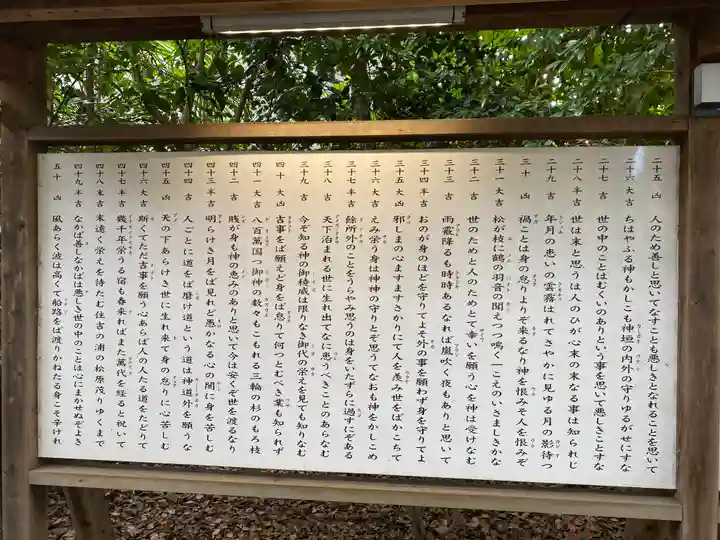 二十五 凶 人のため善しと思いてなすことも悪しきとなれることを思いて
二十六 大吉 ちはやぶる神もかしこも神垣の内外の守りゆるがせにすな
二十七 吉 世の中のことはむくいのありという事を思いて悪しきことすな
二十八 吉 世は末と思うは人のひが心末の末なる事は知られじ
二十九 吉 年月の患いの雲霧はれてさやかに見ゆる月の影待つ
三十 凶 禍ことは身の怠りよりぞ来るなり神を恨みそ人を恨みぞ
三十一 大吉 松が枝に鶴の羽音の聞えつつ鳴く一こえのいさましきかな
三十二 吉 世のためと人のためとて幸いを願う心を神は受けなむ
三十三 吉 雨霰降るも時時あるなれば嵐吹く夜もありと思いて
三十四 半吉 おのが身のほどを守りてよそ外の事を願わず身を守りてよ
三十五 大凶 邪しまの心ますますさかりにて人を羨み世をばかこちて
三十六 大吉 えみ栄う身は神神の守りとぞ思うてなおも神をかしこめ
三十七 半吉 餘所外のことをうらやみ思うのは身をいたずらに過すにぞある
三十八 吉 天下治まれる世に生れ出てなに患うべきことのあらなむ
三十九 大吉 今ぞ知る神の御稜威は限りなき御代の栄えを見ても知りなむ
四十 大凶 吉事をば願えど身をば怠りて何つとむべき業も知られず
四十一 大吉 八百萬国つ御神の数々もこもれる三輪の杉のもろ枝
四十二 吉 賎が身も神の恵みのありと思いて今は安くぞ世を渡るなり
四十三 半吉 明らけき月をば見れど愚かなる心の闇に身を苦しむ
四十四 吉 人ごとに道をば磨け道という道は神道外を願うな
四十五 凶 天の下あらけき世に生れ来て身の怠りに心苦しむ
四十六 大吉 斯くてただ吉事を願う心あらば人の人たる道をたどりて
四十七 半吉 幾千年栄うる宿も春来ればまた萬代を経ると祝いて
四十八 末吉 末遠く栄えを待たむ住吉の浦の松原茂りゆくまで
四十九 半吉 なかば善しなかばは悪しき世の中のことは心にまかせぬぞよき
五十 凶 風あらく波は高くて船路をば渡りかねたる身こそ辛けれ